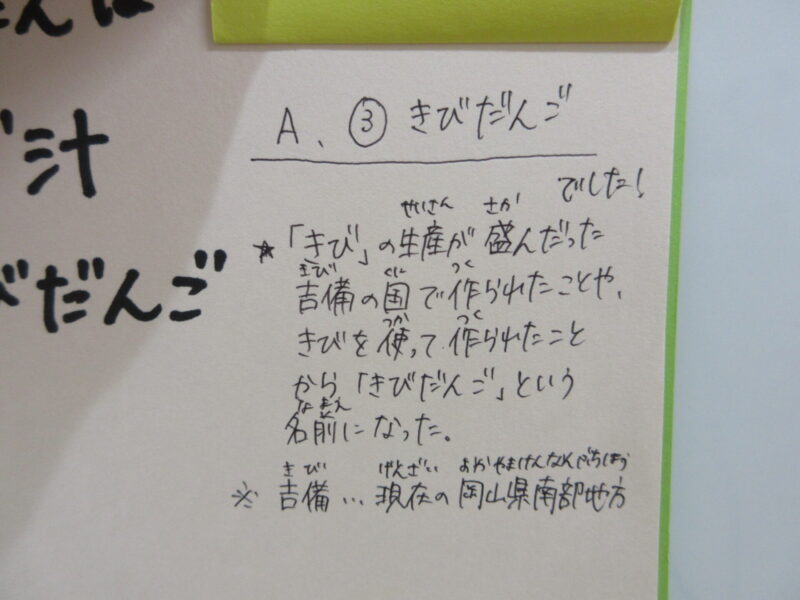 んは
汁
びだんご
A、③ きびだんご
でした!
せいさん さか
★「きび」の生産が盛んだった
きび くに つく
吉備の国で作られたことや、
つか つく
きびを使って作られたこと
から「きびだんご」という
なまえ
名前になった。
きび げんざい おかやまけんなんぶちほう
※ 吉備…現在の岡山県南部地方